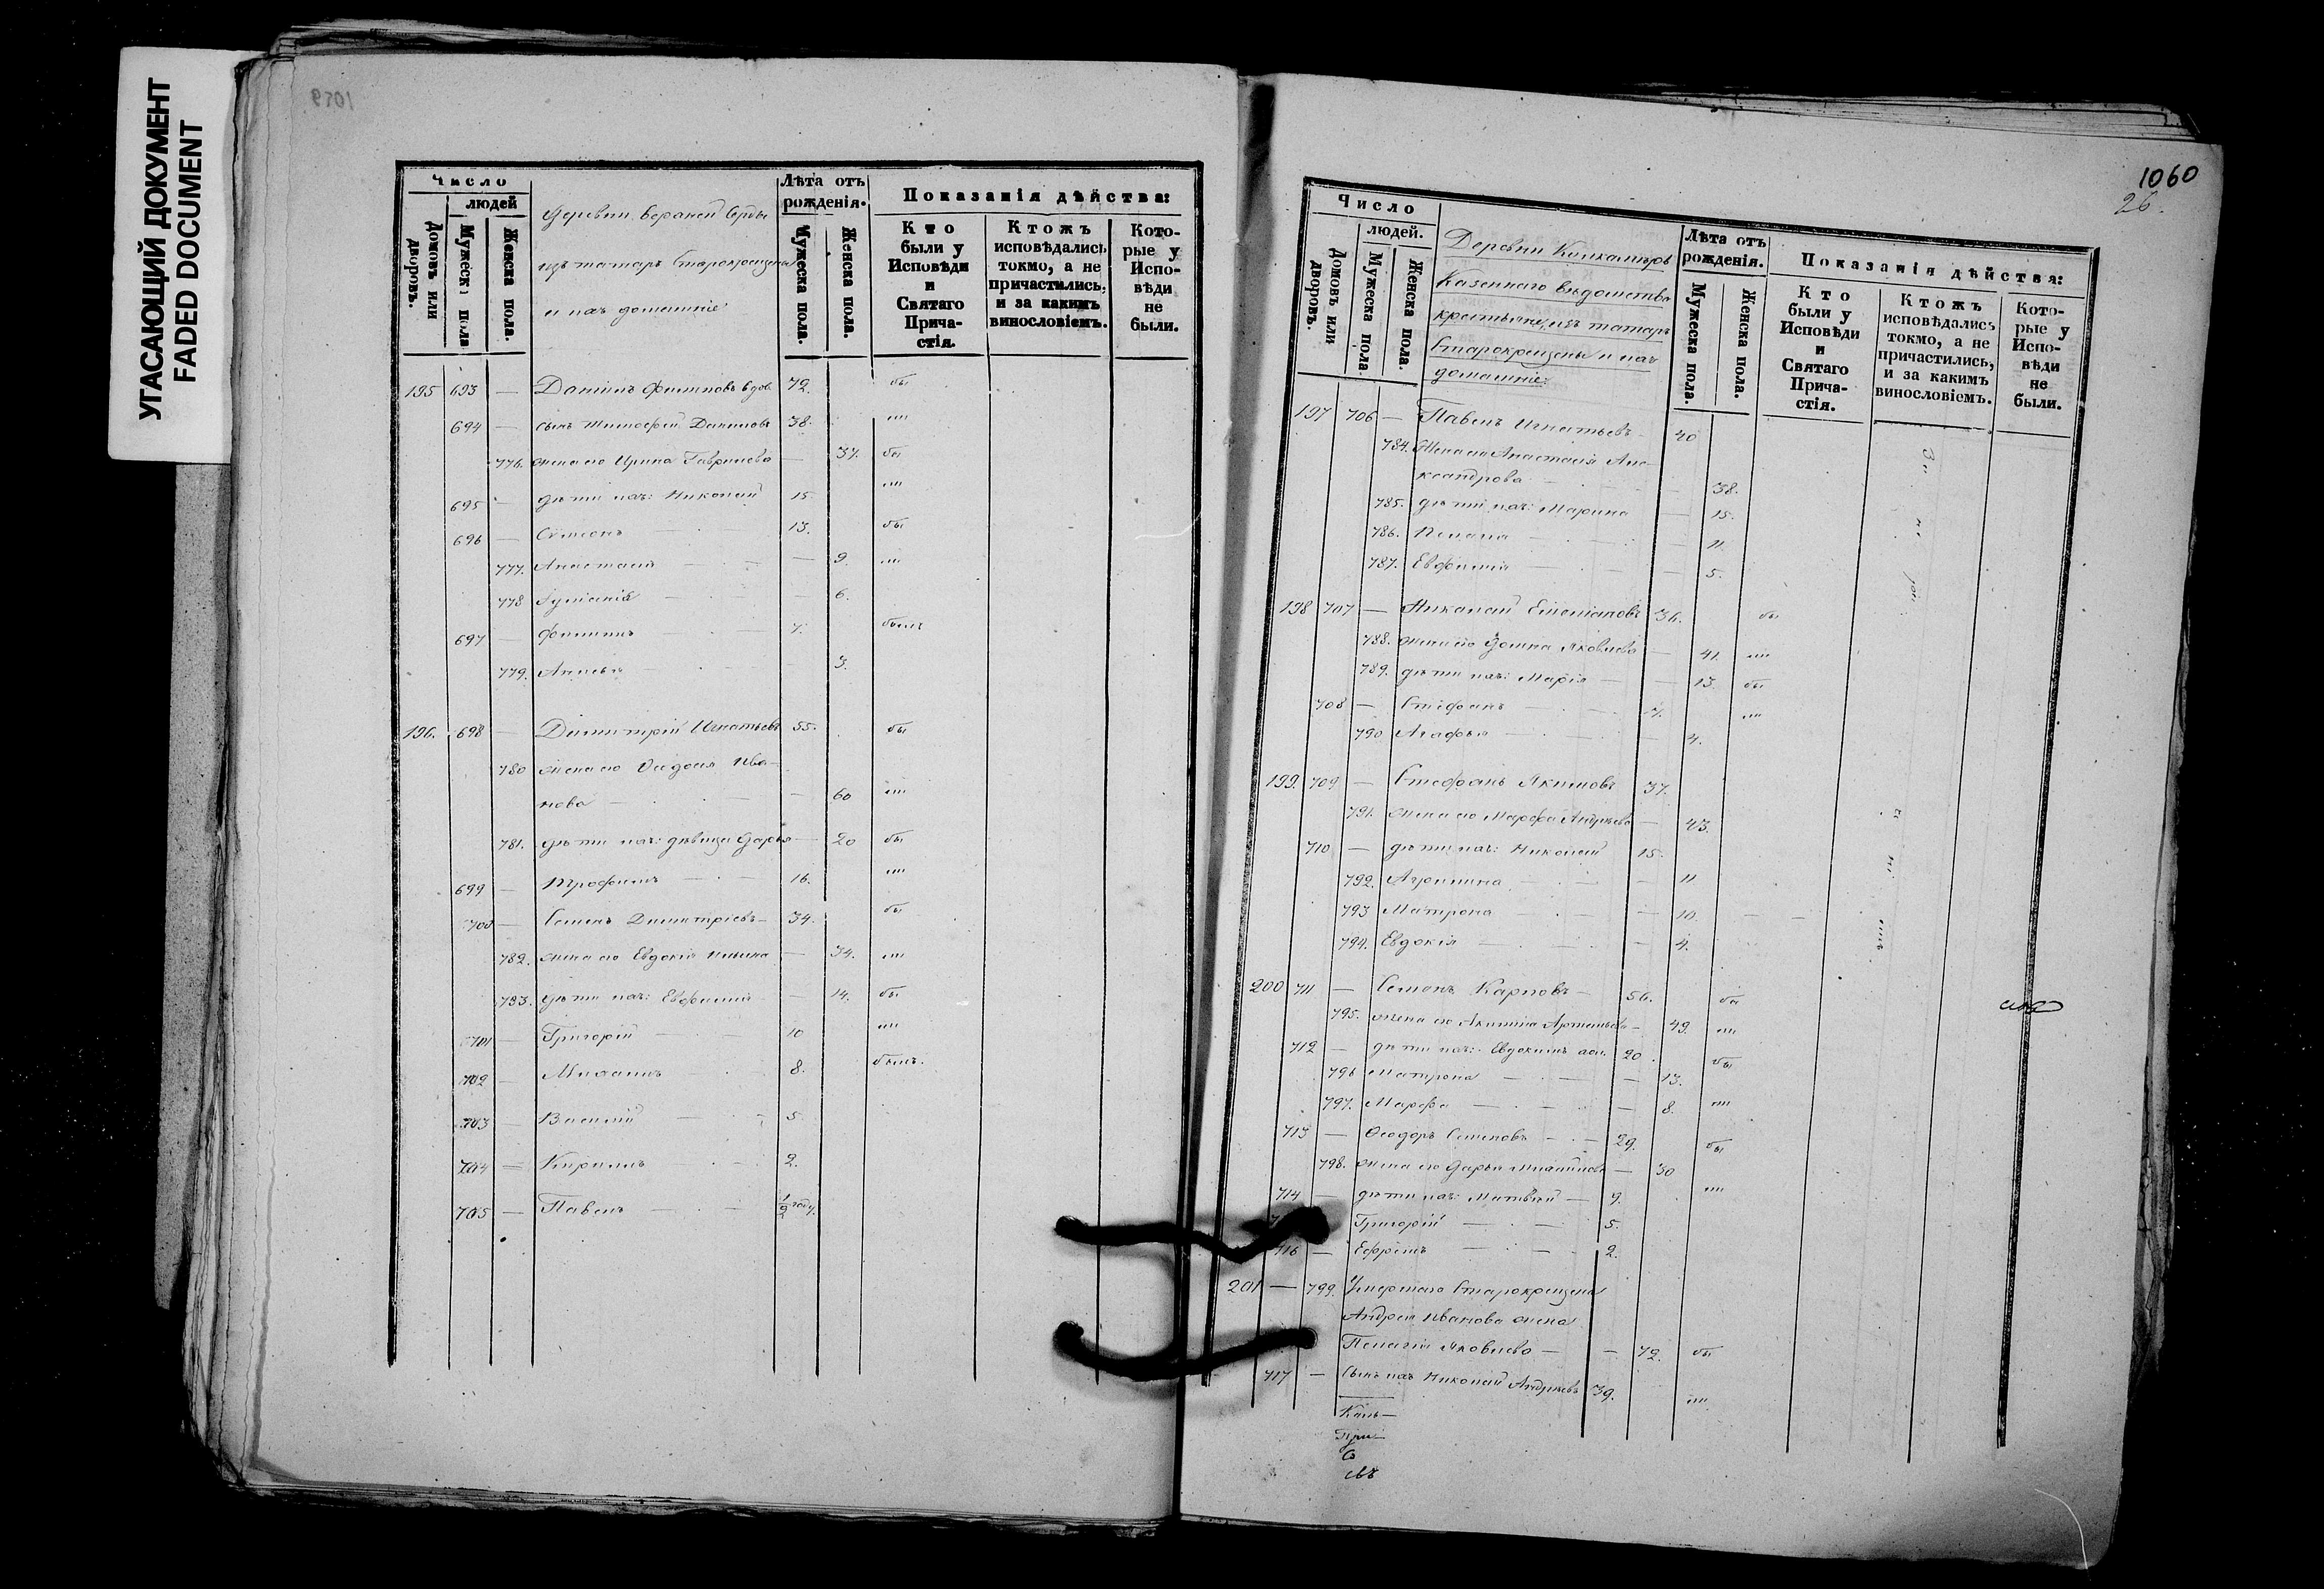 УГАСАЮЩИЙ ДОКУМЕНТ
FADED DOCUMENT
1059
Число
людей
Домовъ или дворовъ.
Мужеска пола
Женска пола.
Деревни Верхней Серды
изъ татаръ Старокрещены
и ихъ домашніе
Лѣта отъ рожденія.
Мужеска пола.
Женска пола.
Показанія дѣйства:
Кто были у Исповѣди и Святаго Причастія.
Ктожъ исповѣдались токмо, а не причастились, и за какимъ винословіемъ.
Которые у Исповѣди не были.
195 693 — Данилъ Филиповъ вдов. 72. бы
694 — сынъ Тимофей Даниловъ 38. "
776. жена его Ирина Гаврилова — 37. бы
695 — дѣти ихъ: Николай 15. "
696 — Сѵмеонъ 13. бы
777. Анастасія — 9. "
778 Іуліанія — 6.
697 — Филиппъ 7. былъ
779. Анисья — 3.
196. 698 — Димитрій Игнатьевъ 55. бы
780 жена его Ѳедосья Ива-
нова — 60 "
781. дѣти ихъ: дѣвица Дарья — 20 бы
699 — Трофимъ 16. "
700 — Семенъ Димитріевъ — 34. бы
782. жена его Евдокія Ильина — 34. "
783. дѣти ихъ: Евфимія — 14. бы
701 — Григорій 10 "
702 — Михаилъ 8. былъ.
703 — Василій 5.
704 — Кириллъ 2.
705 — Павелъ 1/2 году.
1060
26.
Число
людей.
Домовъ или дворовъ.
Мужеска пола
Женска пола.
Деревни
Казеннаго вѣдомства
крестьяне, изъ татаръ
Старокрещены и ихъ
домашніе:
Лѣта отъ рожденія.
Мужеска пола.
Женска пола.
Показанія дѣйства:
Кто были у Исповѣди и Святаго Причастія.
Ктожъ исповѣдались токмо, а не причастились, и за какимъ винословіемъ.
Которые у Исповѣди не были.
197 706 — Павелъ Игнатьевъ 40
784. Жена его Анастасія Але-
ксандрова — 38.
785. дѣти ихъ: Марина — 15.
786. — 11.
787. Евфимія — 5.
198 707 — Николай Емеліановъ 36. бы
788. жена его Домна Яковлева — 41. "
789. дѣти ихъ: Марія — 13. бы
708 — Стефанъ 7. "
790 Агафья — 4.
199. 709 — Стефанъ Якимовъ 37.
791. жена его Марфа Андреева — 43.
710 — дѣти ихъ: Николай 15.
792. Агрипина — 11
793 Матрона — 10.
794. Евдокія — 4.
200 711 — Семенъ Карповъ — 56. бы
795. жена его Акилина Артемьева — 49. "
712 — дѣти ихъ: Евдокимъ 20. бы
796 Матрона — 13.
797. Марфа — 8. "
713 — Ѳеодоръ Семеновъ — 29. бы
798. жена его Дарья Михайлова — 30
714 — дѣти ихъ: Матвей — 9. "
Григорій — 5.
716 — Ефремъ — 2.
201 — 799. Умершаго Старокрещена
Андрея Иванова жена
Пелагія Яковлева — 72. бы
717 — Сынъ ихъ Николай Андреевъ 39. "